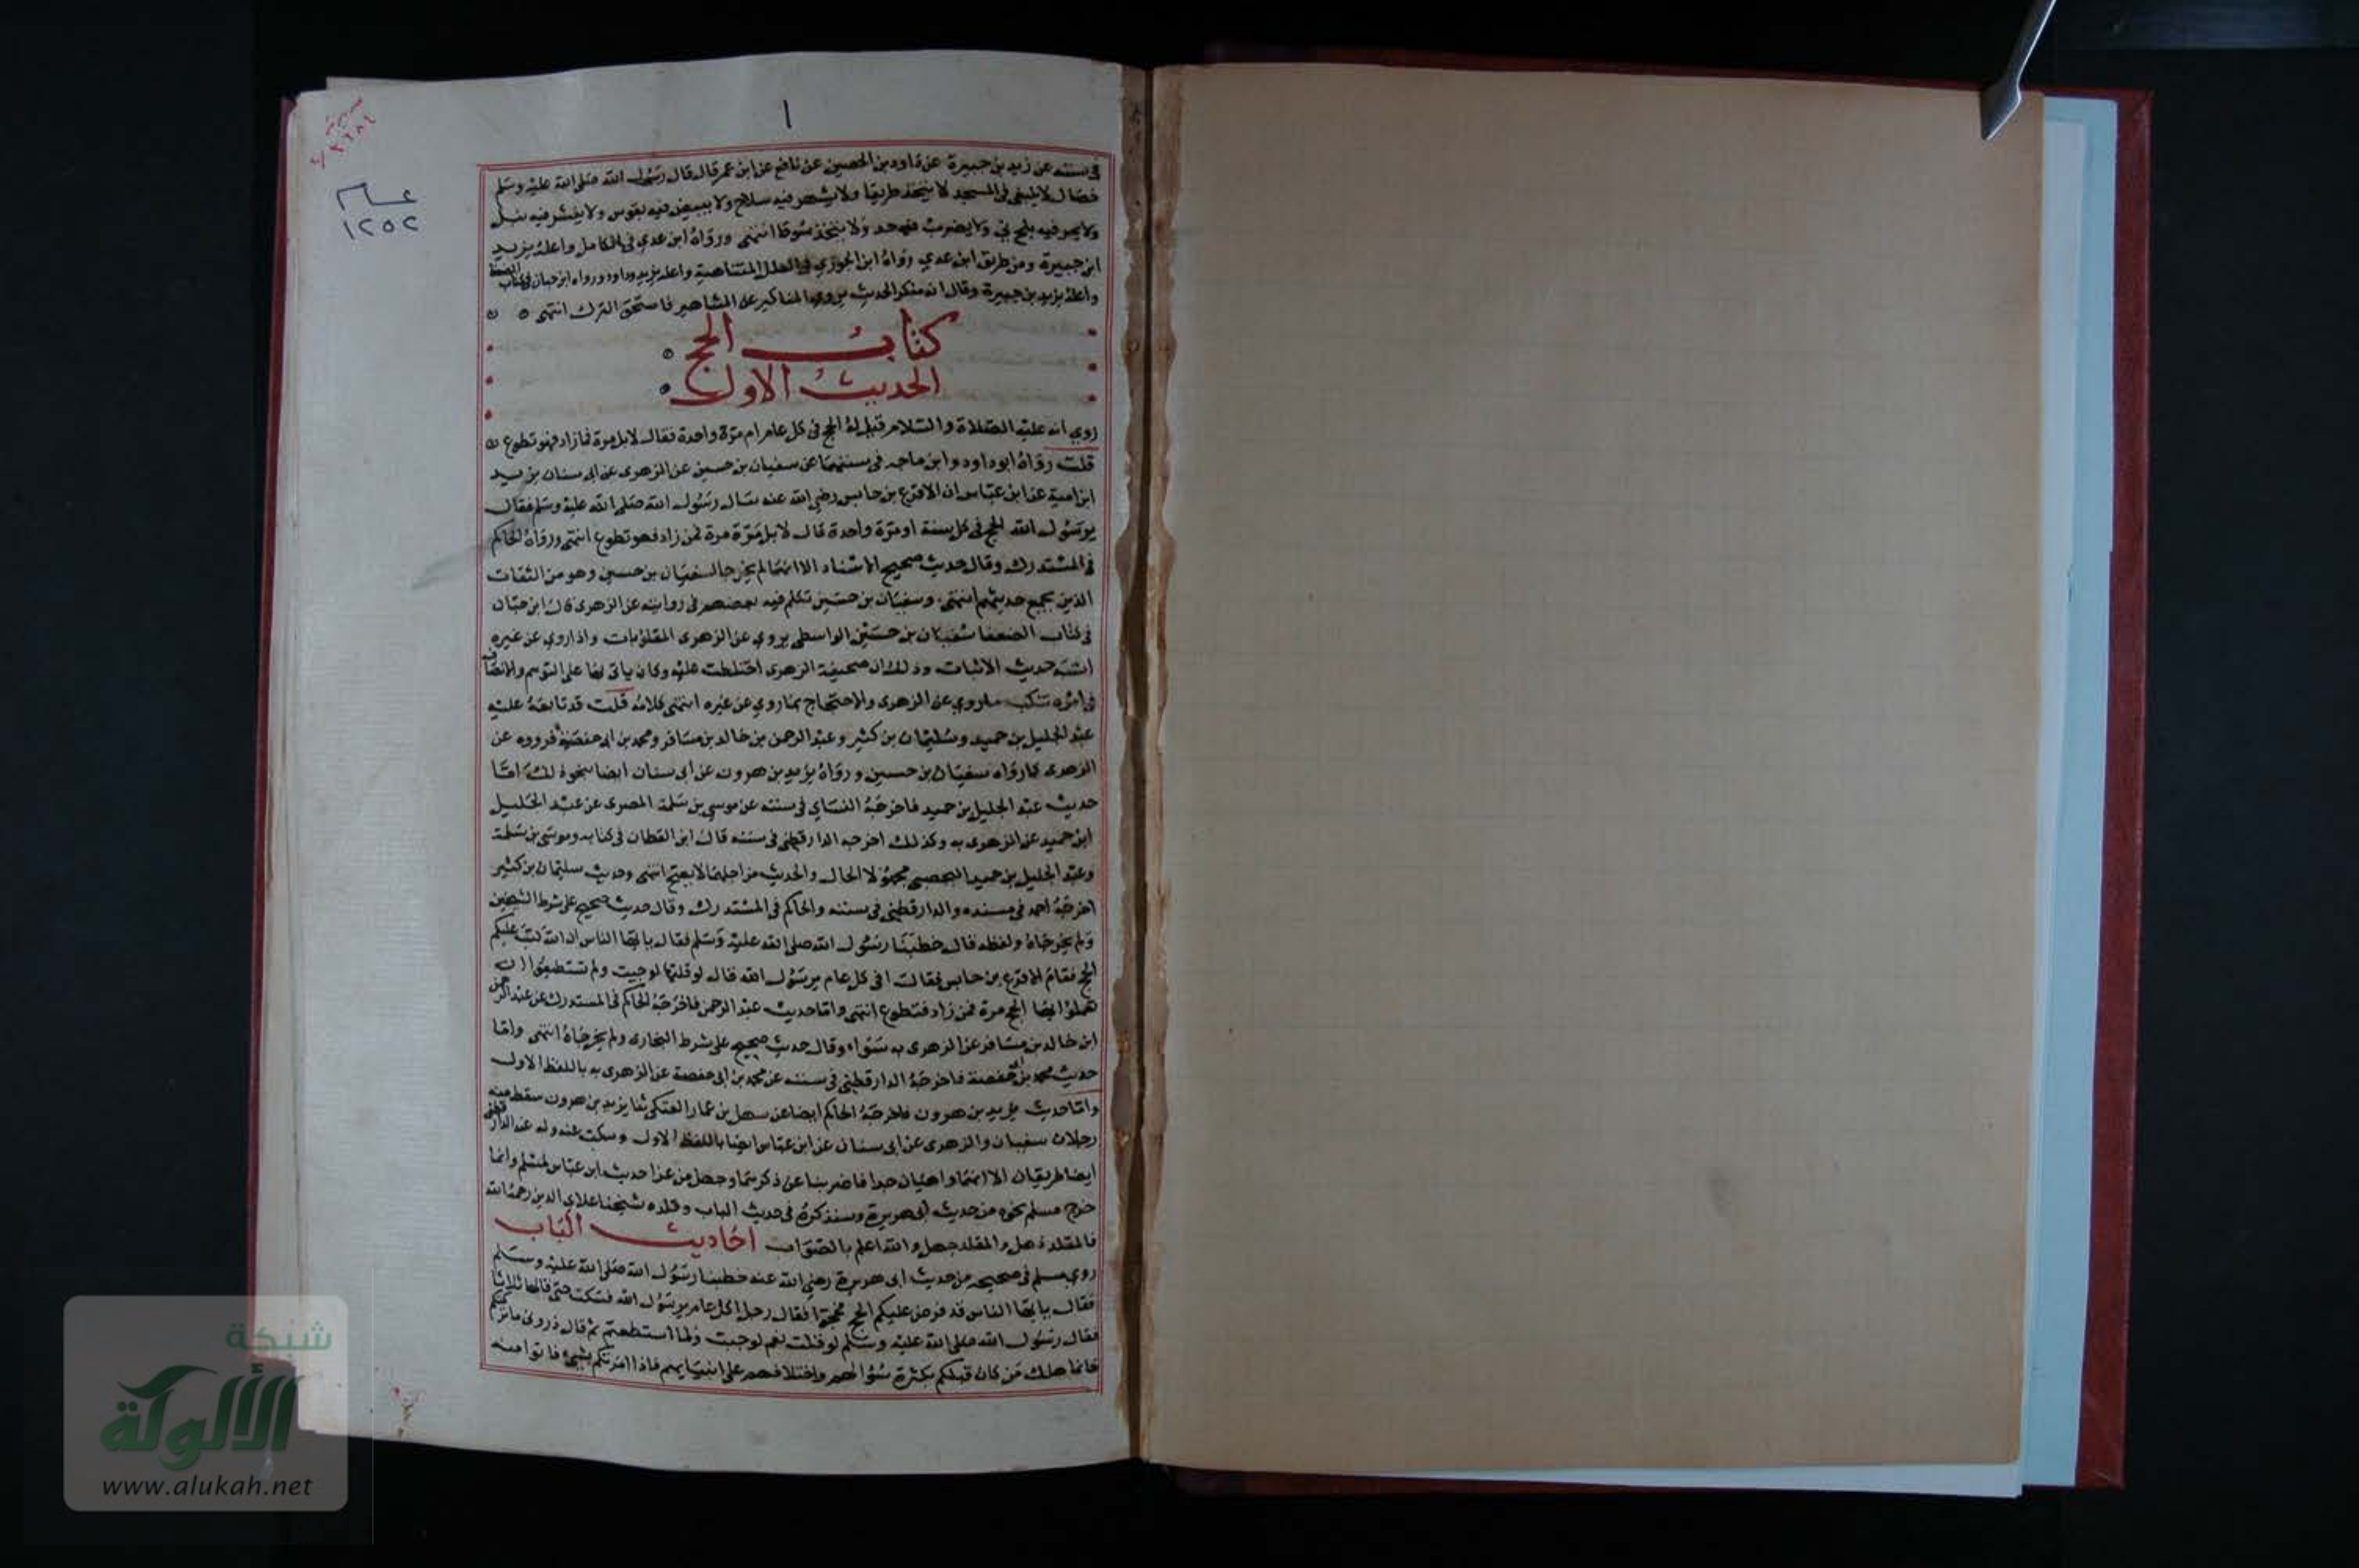 ١
عام
١٢٥٢
في سننه عن زيد بن جبيرة عن داود بن الحصين عن نافع عن ابن عمر قال قال رسول الله صلى الله عليه وسلم
خصال لا ينبغي في المسجد لا يتخذ طريقا ولا يشهر فيه سلاح ولا ينبض فيه بقوس ولا ينشر فيه نبل
ولا يمر فيه بلحم ني ولا يضرب فيه حد ولا يتخذ سوقا انتهى ورواه ابن عدي في الكامل واعله بزيد
ابن جبيرة ومن طريق ابن عدي رواه ابن الجوزي في العلل المتناهية واعله بزيد وداود ورواه ابن حبان في كتاب الضعفا
واعله بزيد بن جبيرة وقال انه منكر الحديث يروي المناكير عن المشاهير فاستحق الترك انتهى
كتاب الحج
الحديث الاول
روي انه عليه الصلاة والسلام قيل له الحج في كل عام ام مرة واحدة فقال لا بل مرة فما زاد فهو تطوع
قلت رواه ابو داود وابن ماجه في سننهما عن سفيان بن حسين عن الزهرى عن ابى سنان يزيد
ابن امية عن ابن عباس ان الاقرع بن حابس رضي الله عنه سال رسول الله صلى الله عليه وسلم فقال
يرسول الله الحج في كل سنة او مرة واحدة قال لا بل مرة مرة فمن زاد فهو تطوع انتهى ورواه الحاكم
في المستدرك وقال حديث صحيح الاسناد الا انهما لم يخرجا لسفيان بن حسين وهو من الثقات
الذين يجمع حديثهم انتهى وسفيان بن حسين تكلم فيه بعضهم في روايته عن الزهرى قال ابن حبان
في كتاب الضعفا سفيان بن حسين الواسطى يروي عن الزهرى المقلوبات واذا روي عن غيره
اشبه حديث الاثبات وذلك ان صحيفة الزهرى اختلطت عليه وكان ياتى بها على التوهم والانصاف
في امره تنكب ما روي عن الزهرى والاحتجاج بما روي عن غيره انتهى كلامه قلت قد تابعه عليه
عبد الجليل بن حميد وسليمان بن كثير وعبد الرحمن بن خالد بن مسافر ومحمد بن ابى حفصة فرووه عن
الزهرى كما رواه سفيان بن حسين ورواه يزيد بن هرون عن ابى سنان ايضا بنحو ذلك اما
حديث عبد الجليل بن حميد فاخرجه النساي في سننه عن موسى بن سلمة المصرى عن عبد الجليل
ابن حميد عن الزهرى به وكذلك اخرجه الدارقطنى في سننه قال ابن القطان في كتابه وموسى بن سلمة
وعبد الجليل بن حميد اليحصبي مجهولا الحال والحديث من اجلهما لا يصح انتهى وحديث سليمان بن كثير
اخرجه احمد في مسنده والدارقطني في سننه والحاكم في المستدرك وقال حديث صحيح على شرط الشيخين
ولم يخرجاه ولفظه قال خطبنا رسول الله صلى الله عليه وسلم فقال يا ايها الناس ان الله كتب عليكم
الحج فقام الاقرع بن حابس فقال افى كل عام يرسول الله قال لو قلتها لوجبت ولم تستطيعوا ان
تعملوا بها الحج مرة فمن زاد فتطوع انتهى واما حديث عبد الرحمن فاخرجه الحاكم في المستدرك عن عبد الرحمن
ابن خالد بن مسافر عن الزهرى به سواء وقال حديث صحيح على شرط البخارى ولم يخرجاه انتهى واما
حديث محمد بن ابى حفصة فاخرجه الدارقطني في سننه عن محمد بن ابى حفصة عن الزهرى به باللفظ الاول
واما حديث يزيد بن هرون فاخرجه الحاكم ايضا عن سهل بن عمار العتكى ثنا يزيد بن هرون سقط منه
رجلان سفيان والزهرى عن ابى سنان عن ابن عباس ايضا باللفظ الاول وسكت عنه وله عند الدارقطنى
ايضا طريقان الا انهما واهيان جدا فاضربنا عن ذكرهما وجعل من عزا حديث ابن عباس لمسلم وانما
خرج مسلم نحوه من حديث ابى هريرة وسنذكره في حديث الباب وقلده شيخنا علاي الدين رحمه الله
فالمقلد ذهل والمقلد جهل والله اعلم بالصواب احاديث الباب
روي مسلم في صحيحه من حديث ابى هريرة رضي الله عنه خطبنا رسول الله صلى الله عليه وسلم
فقال يا ايها الناس قد فرض عليكم الحج فحجوا فقال رجل اكل عام يرسول الله فسكت حتى قالها ثلاثا
فقال رسول الله صلى الله عليه وسلم لو قلت نعم لوجبت ولما استطعتم ثم قال ذروني ما تركتكم
فانما هلك من كان قبلكم بكثرة سؤالهم واختلافهم على انبيايهم فاذا امرتكم بشيء فاتوا منه
شبكة
الألوكة
www.alukah.net